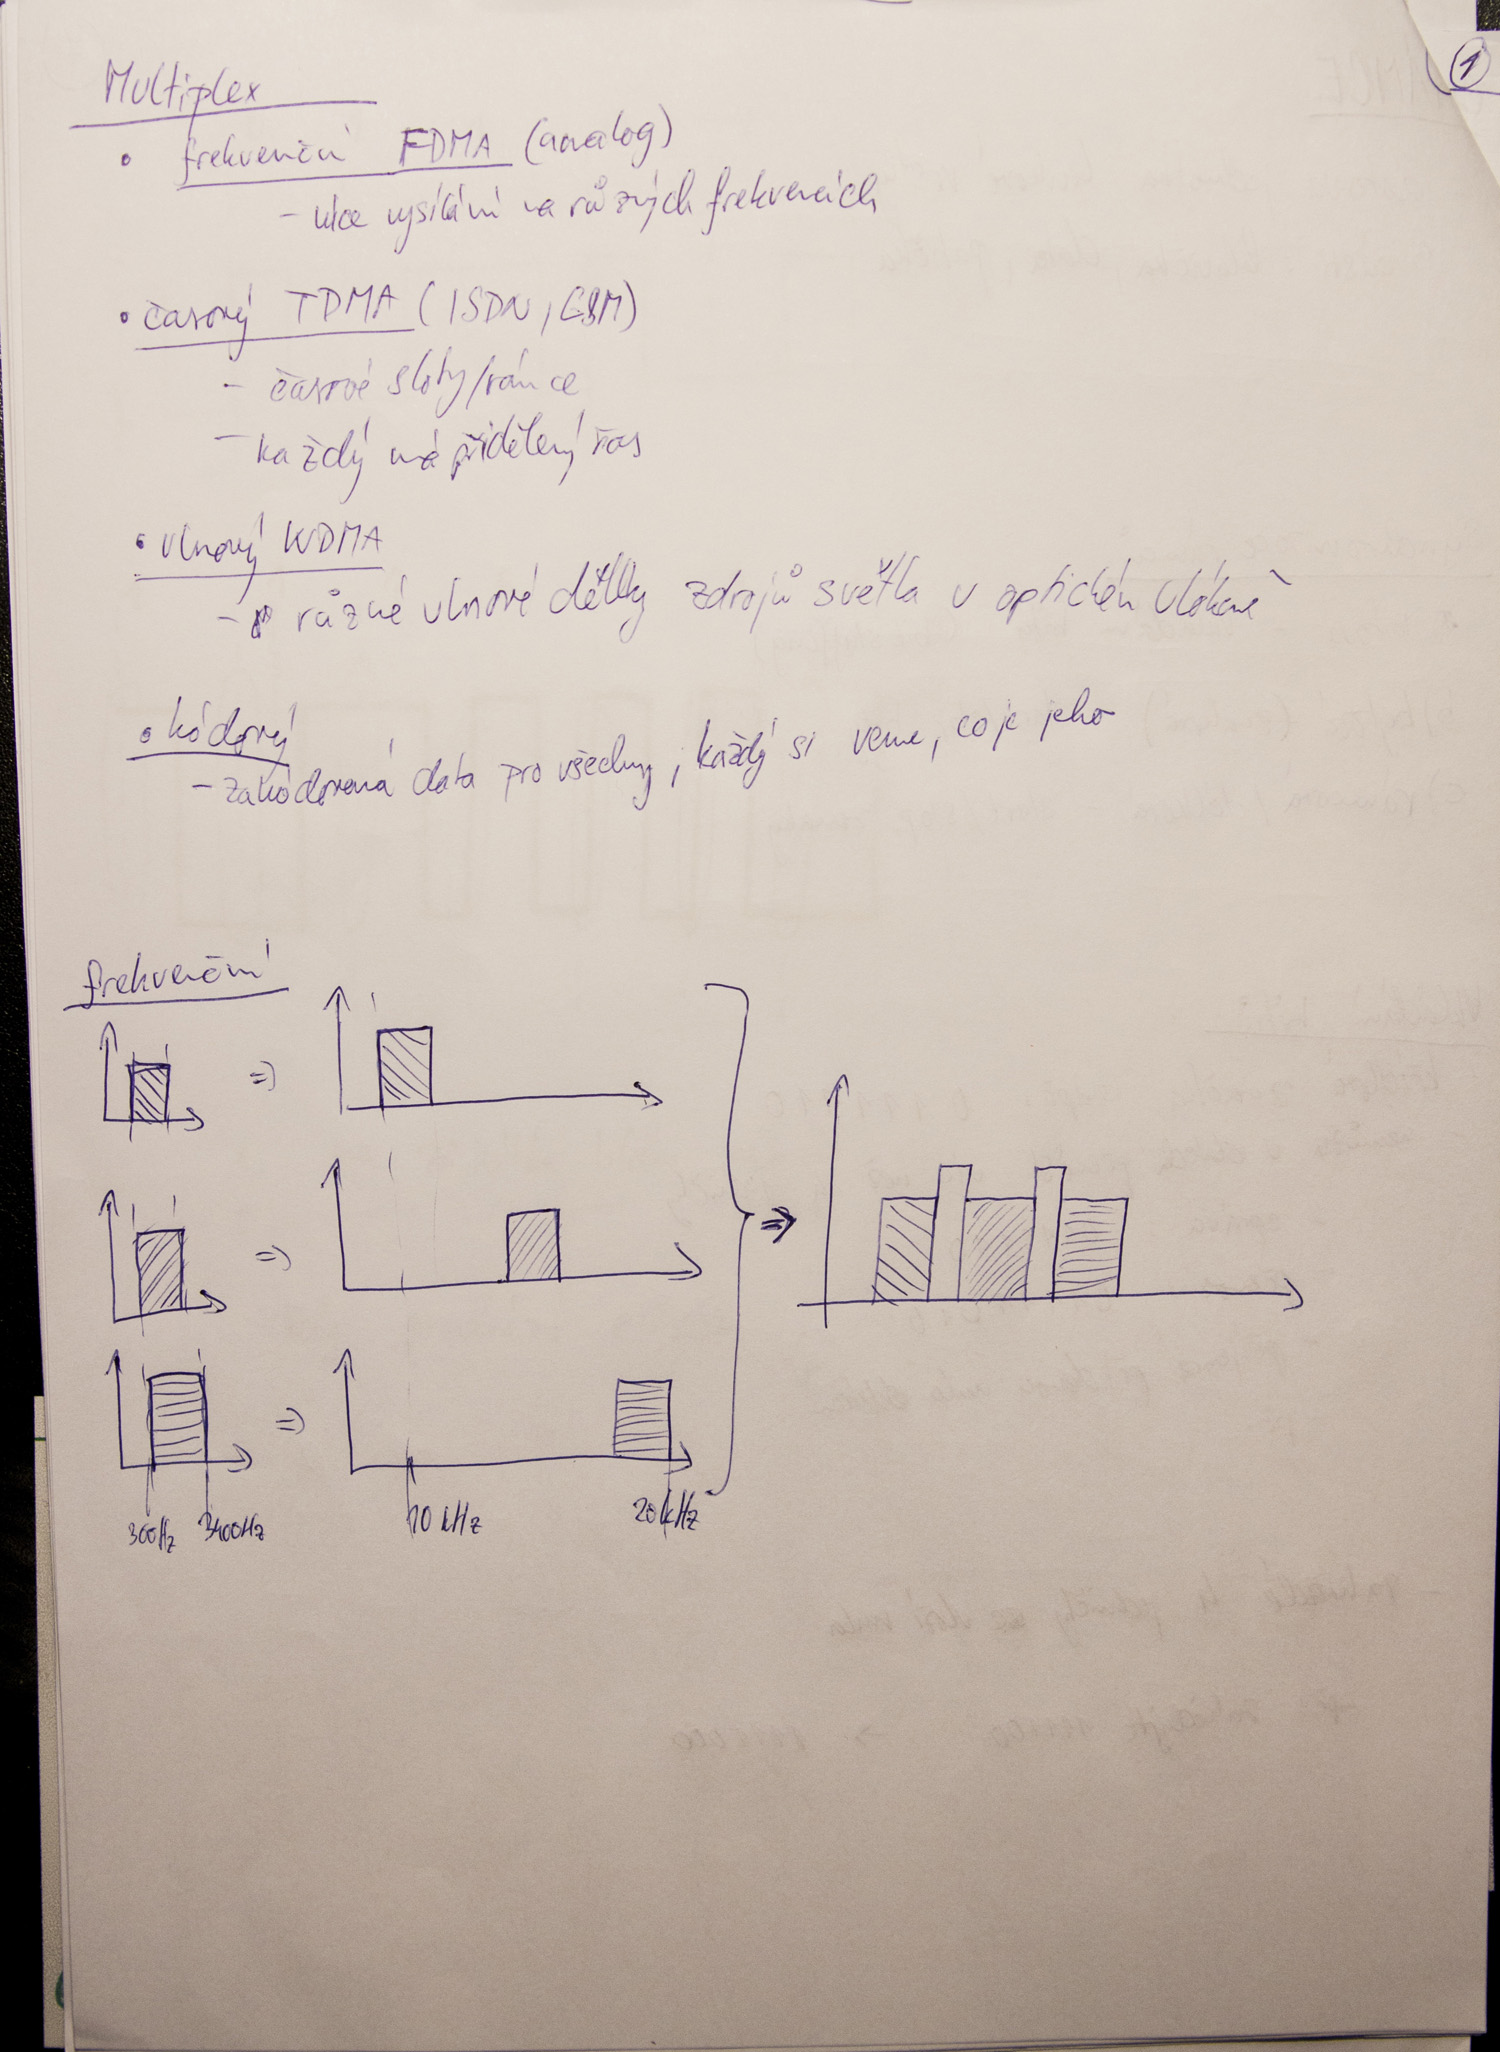 1
Multiplex
• frekvenční FDMA (analog)
- více vysílání na různých frekvencích
• časový TDMA (ISDN, GSM)
- časové sloty/rámce
- každý má přidělený čas
• vlnový WDMA
- různé vlnové délky zdrojů světla v optickém vlákně
• kódový
- zakódovaná data pro všechny, každý si veme, co je jeho
frekvenční
300Hz 3400Hz 10 kHz 20kHz